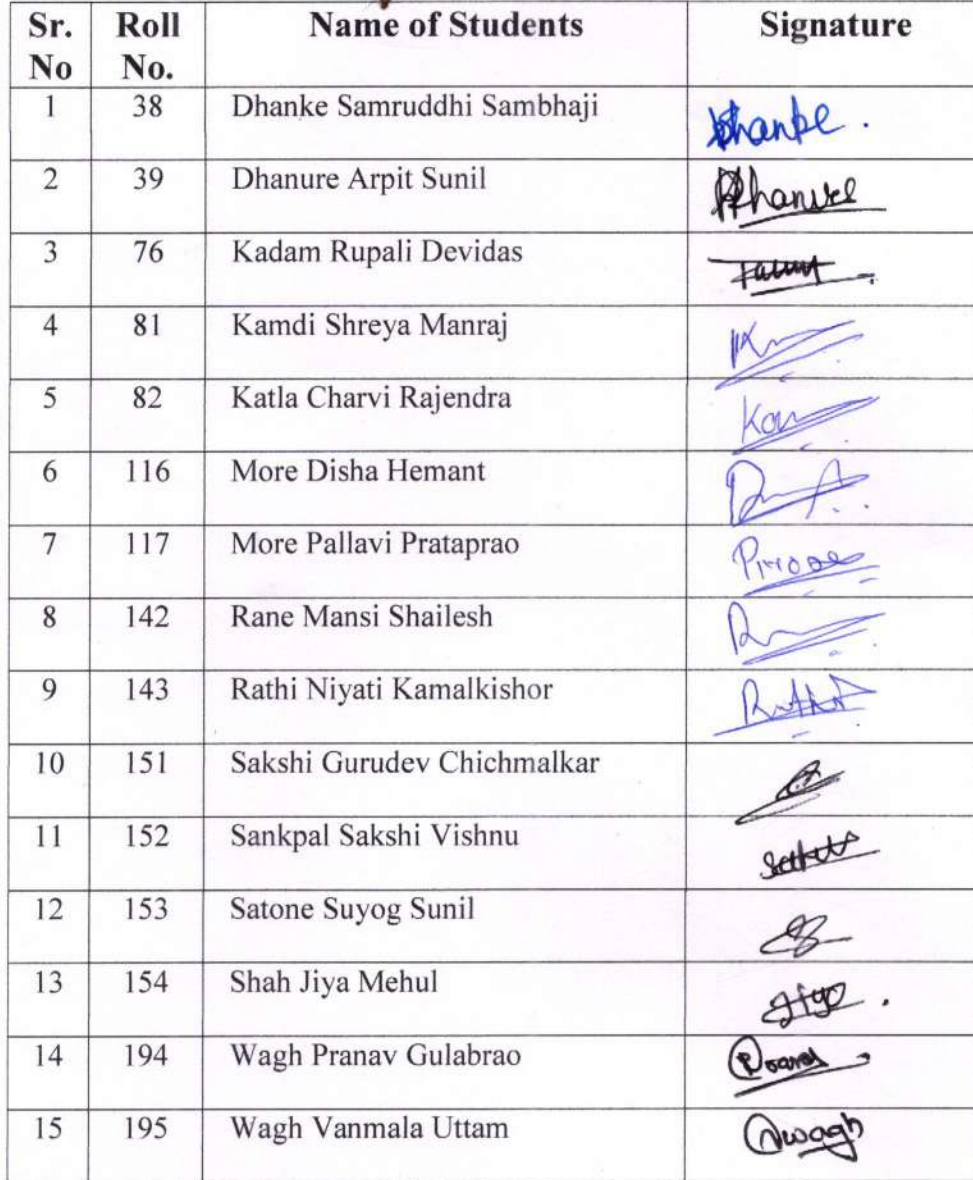 Sr. No Roll No. Name of Students Signature
1 38 Dhanke Samruddhi Sambhaji Dhanke.
2 39 Dhanure Arpit Sunil Dhanure
3 76 Kadam Rupali Devidas
4 81 Kamdi Shreya Manraj
5 82 Katla Charvi Rajendra
6 116 More Disha Hemant
7 117 More Pallavi Prataprao Pmore
8 142 Rane Mansi Shailesh
9 143 Rathi Niyati Kamalkishor Rathi
10 151 Sakshi Gurudev Chichmalkar
11 152 Sankpal Sakshi Vishnu
12 153 Satone Suyog Sunil
13 154 Shah Jiya Mehul Jiya.
14 194 Wagh Pranav Gulabrao
15 195 Wagh Vanmala Uttam